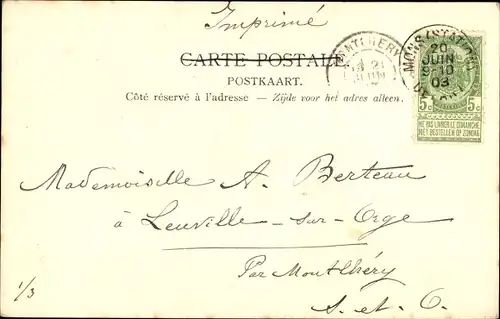 Imprimé
CARTE POSTALE.
POSTKAART.
Côté réservé à l'adresse — Zijde voor het adres alleen.
MONTLHERY
21
JUIN
MONS (STATION)
20
JUIN
9-10
03
5c 5c
NE PAS LIVRER LE DIMANCHE
NIET BESTELLEN OP ZONDAG
Mademoiselle A. Berteau
à Leuville-sur-Orge
Par Montlhéry
S. et O.
1/3